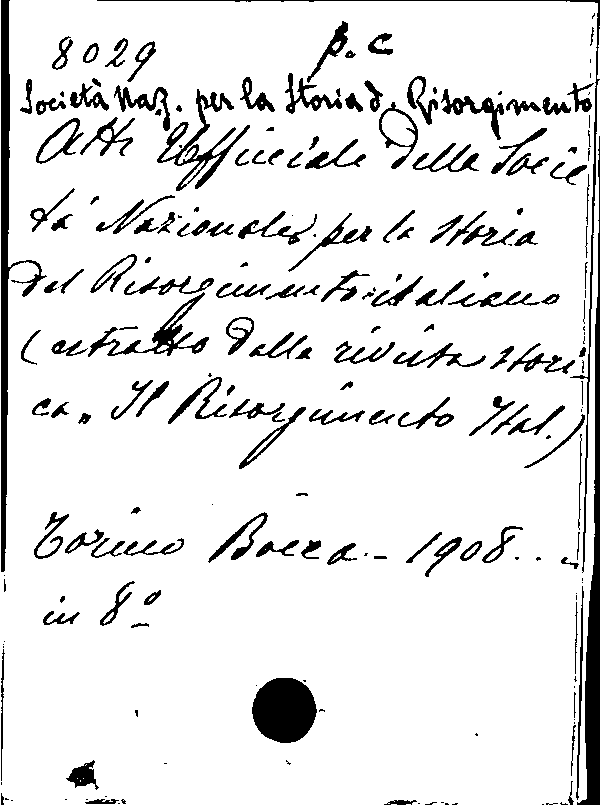 8029 p.c
Società Naz. per la Storia d. Risorgimento
Atti Ufficiale della Socie
tà Nazionale per la Storia
del Risorgimento italiano
(estratto dalla rivista stori
ca „ Il Risorgimento Ital.)
Torino Bocca - 1908...
in 8º